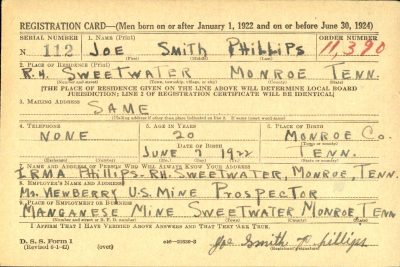 REGISTRATION CARD—(Men born on or after January 1, 1922 and on or before June 30, 1924)
SERIAL NUMBER 1. NAME (Print) ORDER NUMBER
N 112 JOE SMITH PHILLIPS 11,390
(First) (Middle) (Last)
2. PLACE OF RESIDENCE (Print)
R.4. SWEETWATER MONROE TENN.
(Number and street) (Town, township, village, or city) (County) (State)
[THE PLACE OF RESIDENCE GIVEN ON THE LINE ABOVE WILL DETERMINE LOCAL BOARD
JURISDICTION; LINE 2 OF REGISTRATION CERTIFICATE WILL BE IDENTICAL]
3. MAILING ADDRESS
SAME
[Mailing address if other than place indicated on line 2. If same insert word same]
4. TELEPHONE 5. AGE IN YEARS 6. PLACE OF BIRTH
NONE 20 MONROE CO.
DATE OF BIRTH (Town or county)
JUNE 7 1922 TENN.
7. NAME AND ADDRESS OF PERSON WHO WILL ALWAYS KNOW YOUR ADDRESS
IRMA PHILLIPS-R4. SWEETWATER, MONROE, TENN.
8. EMPLOYER'S NAME AND ADDRESS
MR. NEWBERRY U.S. MINE PROSPECTOR
9. PLACE OF EMPLOYMENT OR BUSINESS
MANGANESE MINE SWEETWATER MONROE TENN
I AFFIRM THAT I HAVE VERIFIED ABOVE ANSWERS AND THAT THEY ARE TRUE.
D. S. S. Form 1
(Revised 6-1-42) (over) Joe Smith Phillips